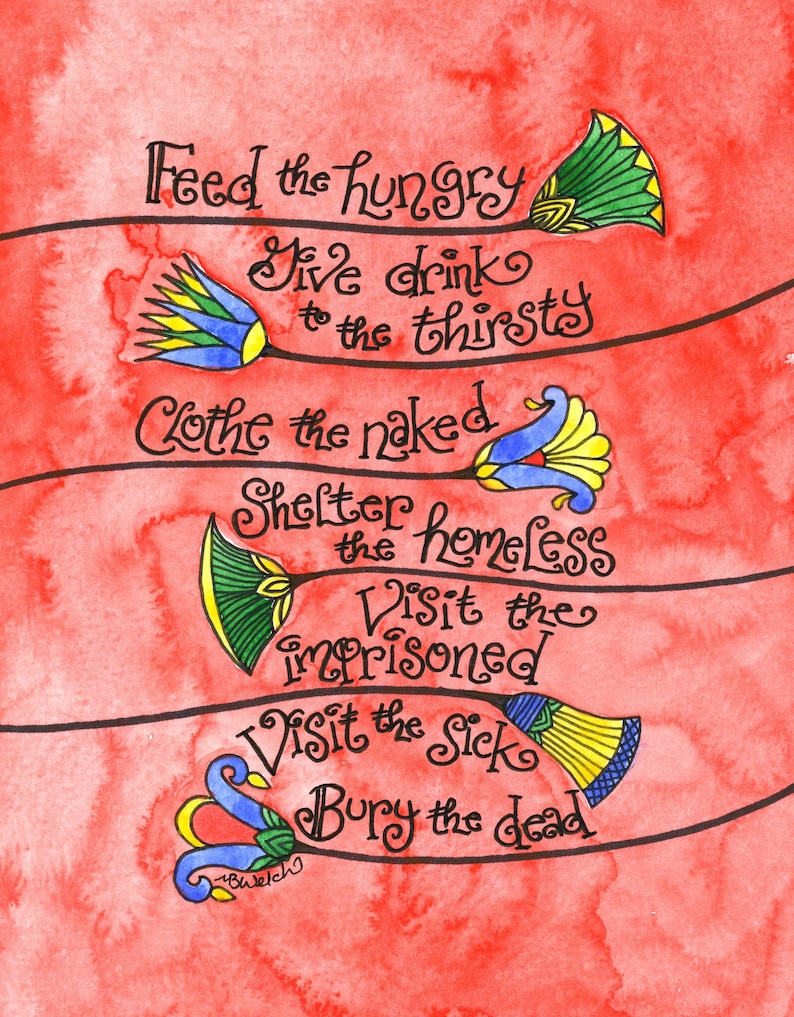 Feed the hungry
Give drink
to the thirsty
Clothe the naked
Shelter
the homeless
Visit the
imprisoned
Visit the sick
Bury the dead
BWelch